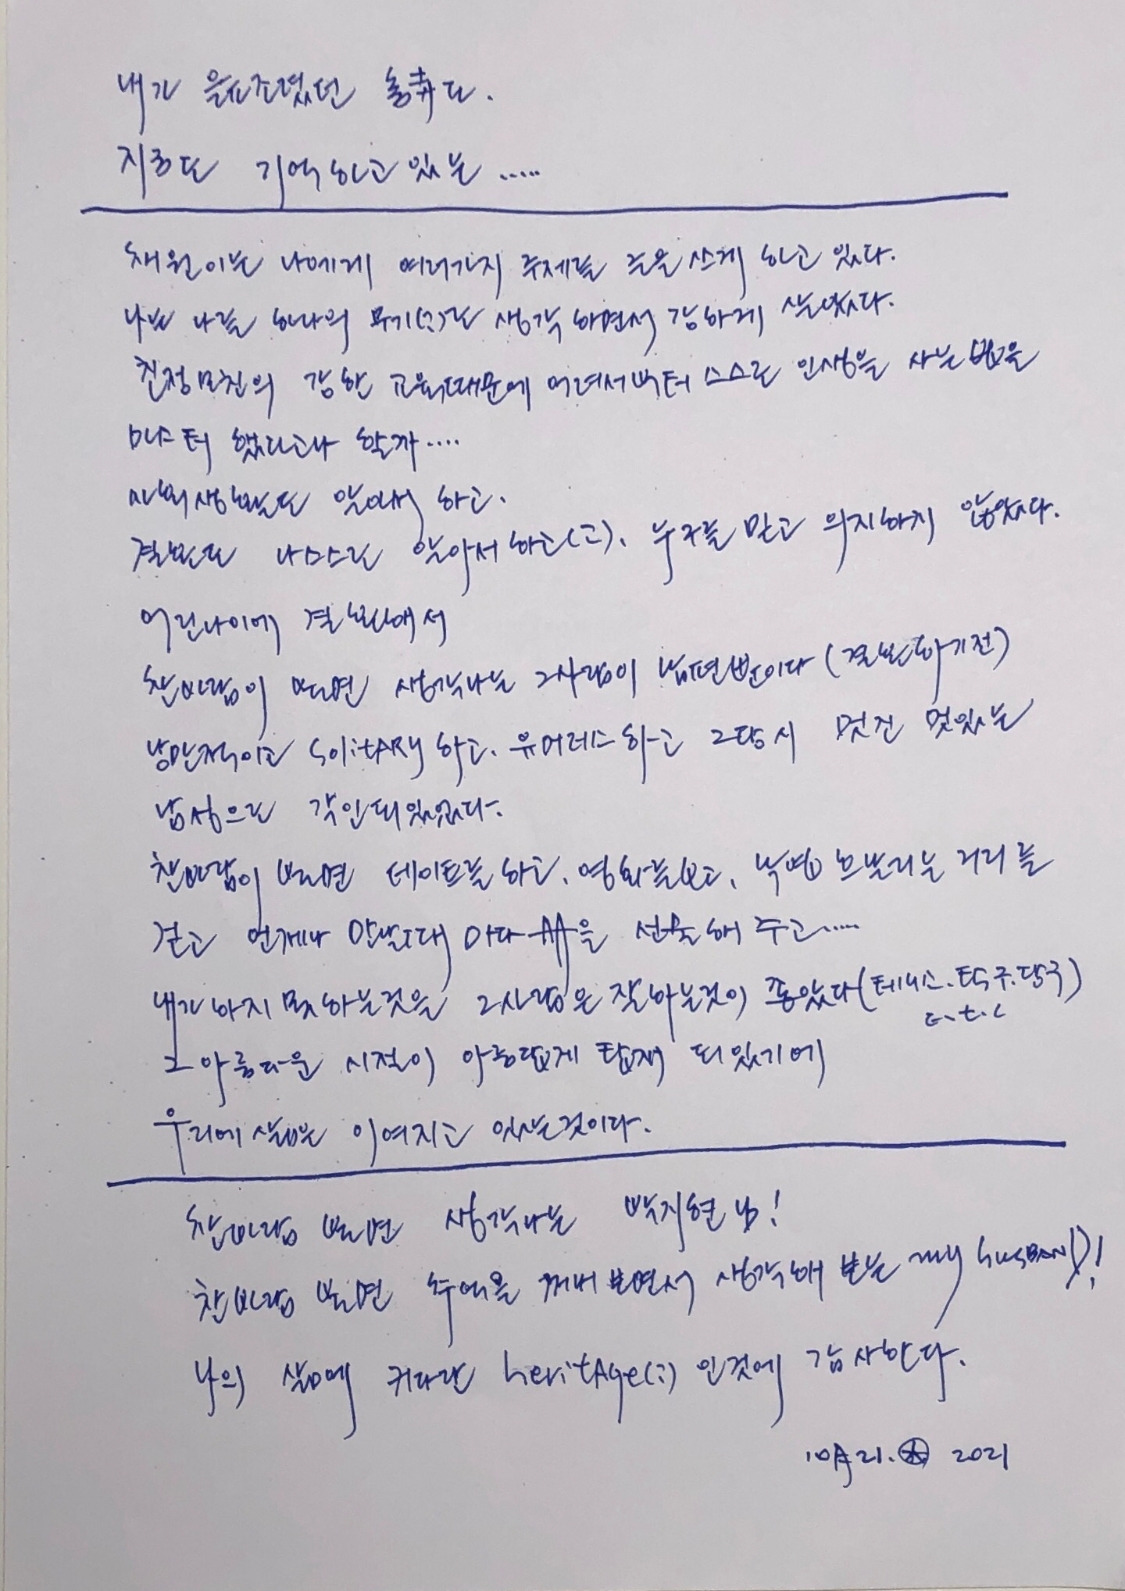 내가 읊조렸던 童春도.
지금도 기억하고 있는 .....
채원이는 나에게 여러가지 주제를 글을 쓰게 하고 있다.
나는 나를 하나의 무기(?)로 생각하면서 강하게 살았다.
친정모친의 강한 교육때문에 어려서부터 스스로 인생을 사는 법을
마스터 했다고나 할까....
사회생활도 알아서 하고.
결혼도 나 스스로 알아서 하고(고). 누구를 믿고 의지하지 않았다.
어린나이에 결혼해서
찬바람이 불면 생각나는 그사람이 남편분이다 (결혼하기전)
낭만적이고 solitary하고. 유머러스하고 그당시 멋진 멋있는
남성으로 각인되있었다.
찬바람이 불면 데이트를 하고. 영화를보고, 낙엽 흩날리는 거리를
걷고 언제나 만날때 마다 을 선물해 주고.....
내가 하지 못하는것을 그사람은 잘하는것이 좋았다(테니스.탁구.당구)
e.t.c
그 아름다운 시절이 아름답게 탑재 되있기에
우리에 삶은 이여지고 있는것이다.
찬바람 불면 생각나는 박지현 님!
찬바람 불면 추억을 꺼내 보면서 생각해 보는 my husBAND!
나의 삶에 커다란 heritAge(?) 인것에 감사한다.
10月21.木 2021